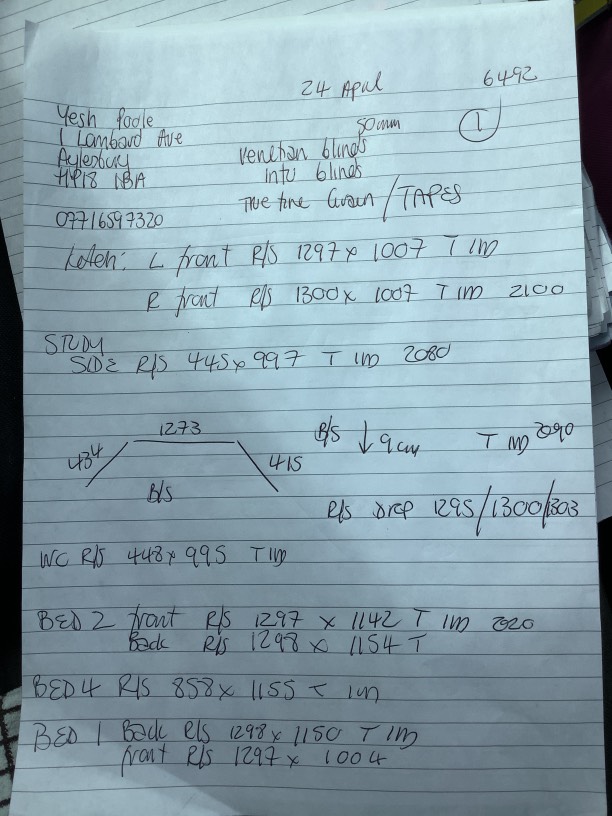 24 April 6492
Yesh Poole 50mm 1
1 Lombard Ave Venetian blinds
Aylesbury into blinds
HP18 1BA True fine Grain / TAPES
07716597320
L front R/S 1297 x 1007 T 1M
R front R/S 1300 x 1007 T 1M 2100
STUDY
SIDE R/S 445 x 997 T 1M 2080
434 1273 415 B/S ↓ 9cm T 1M 2090
B/S R/S Drop 1295/1300/1303
WC R/S 448 x 995 T 1M
BED 2 front R/S 1297 x 1142 T 1M 2020
Back R/S 1298 x 1154 T
BED 4 R/S 858 x 1155 T 1M
BED 1 Back R/S 1298 x 1150 T 1M
front R/S 1297 x 1004